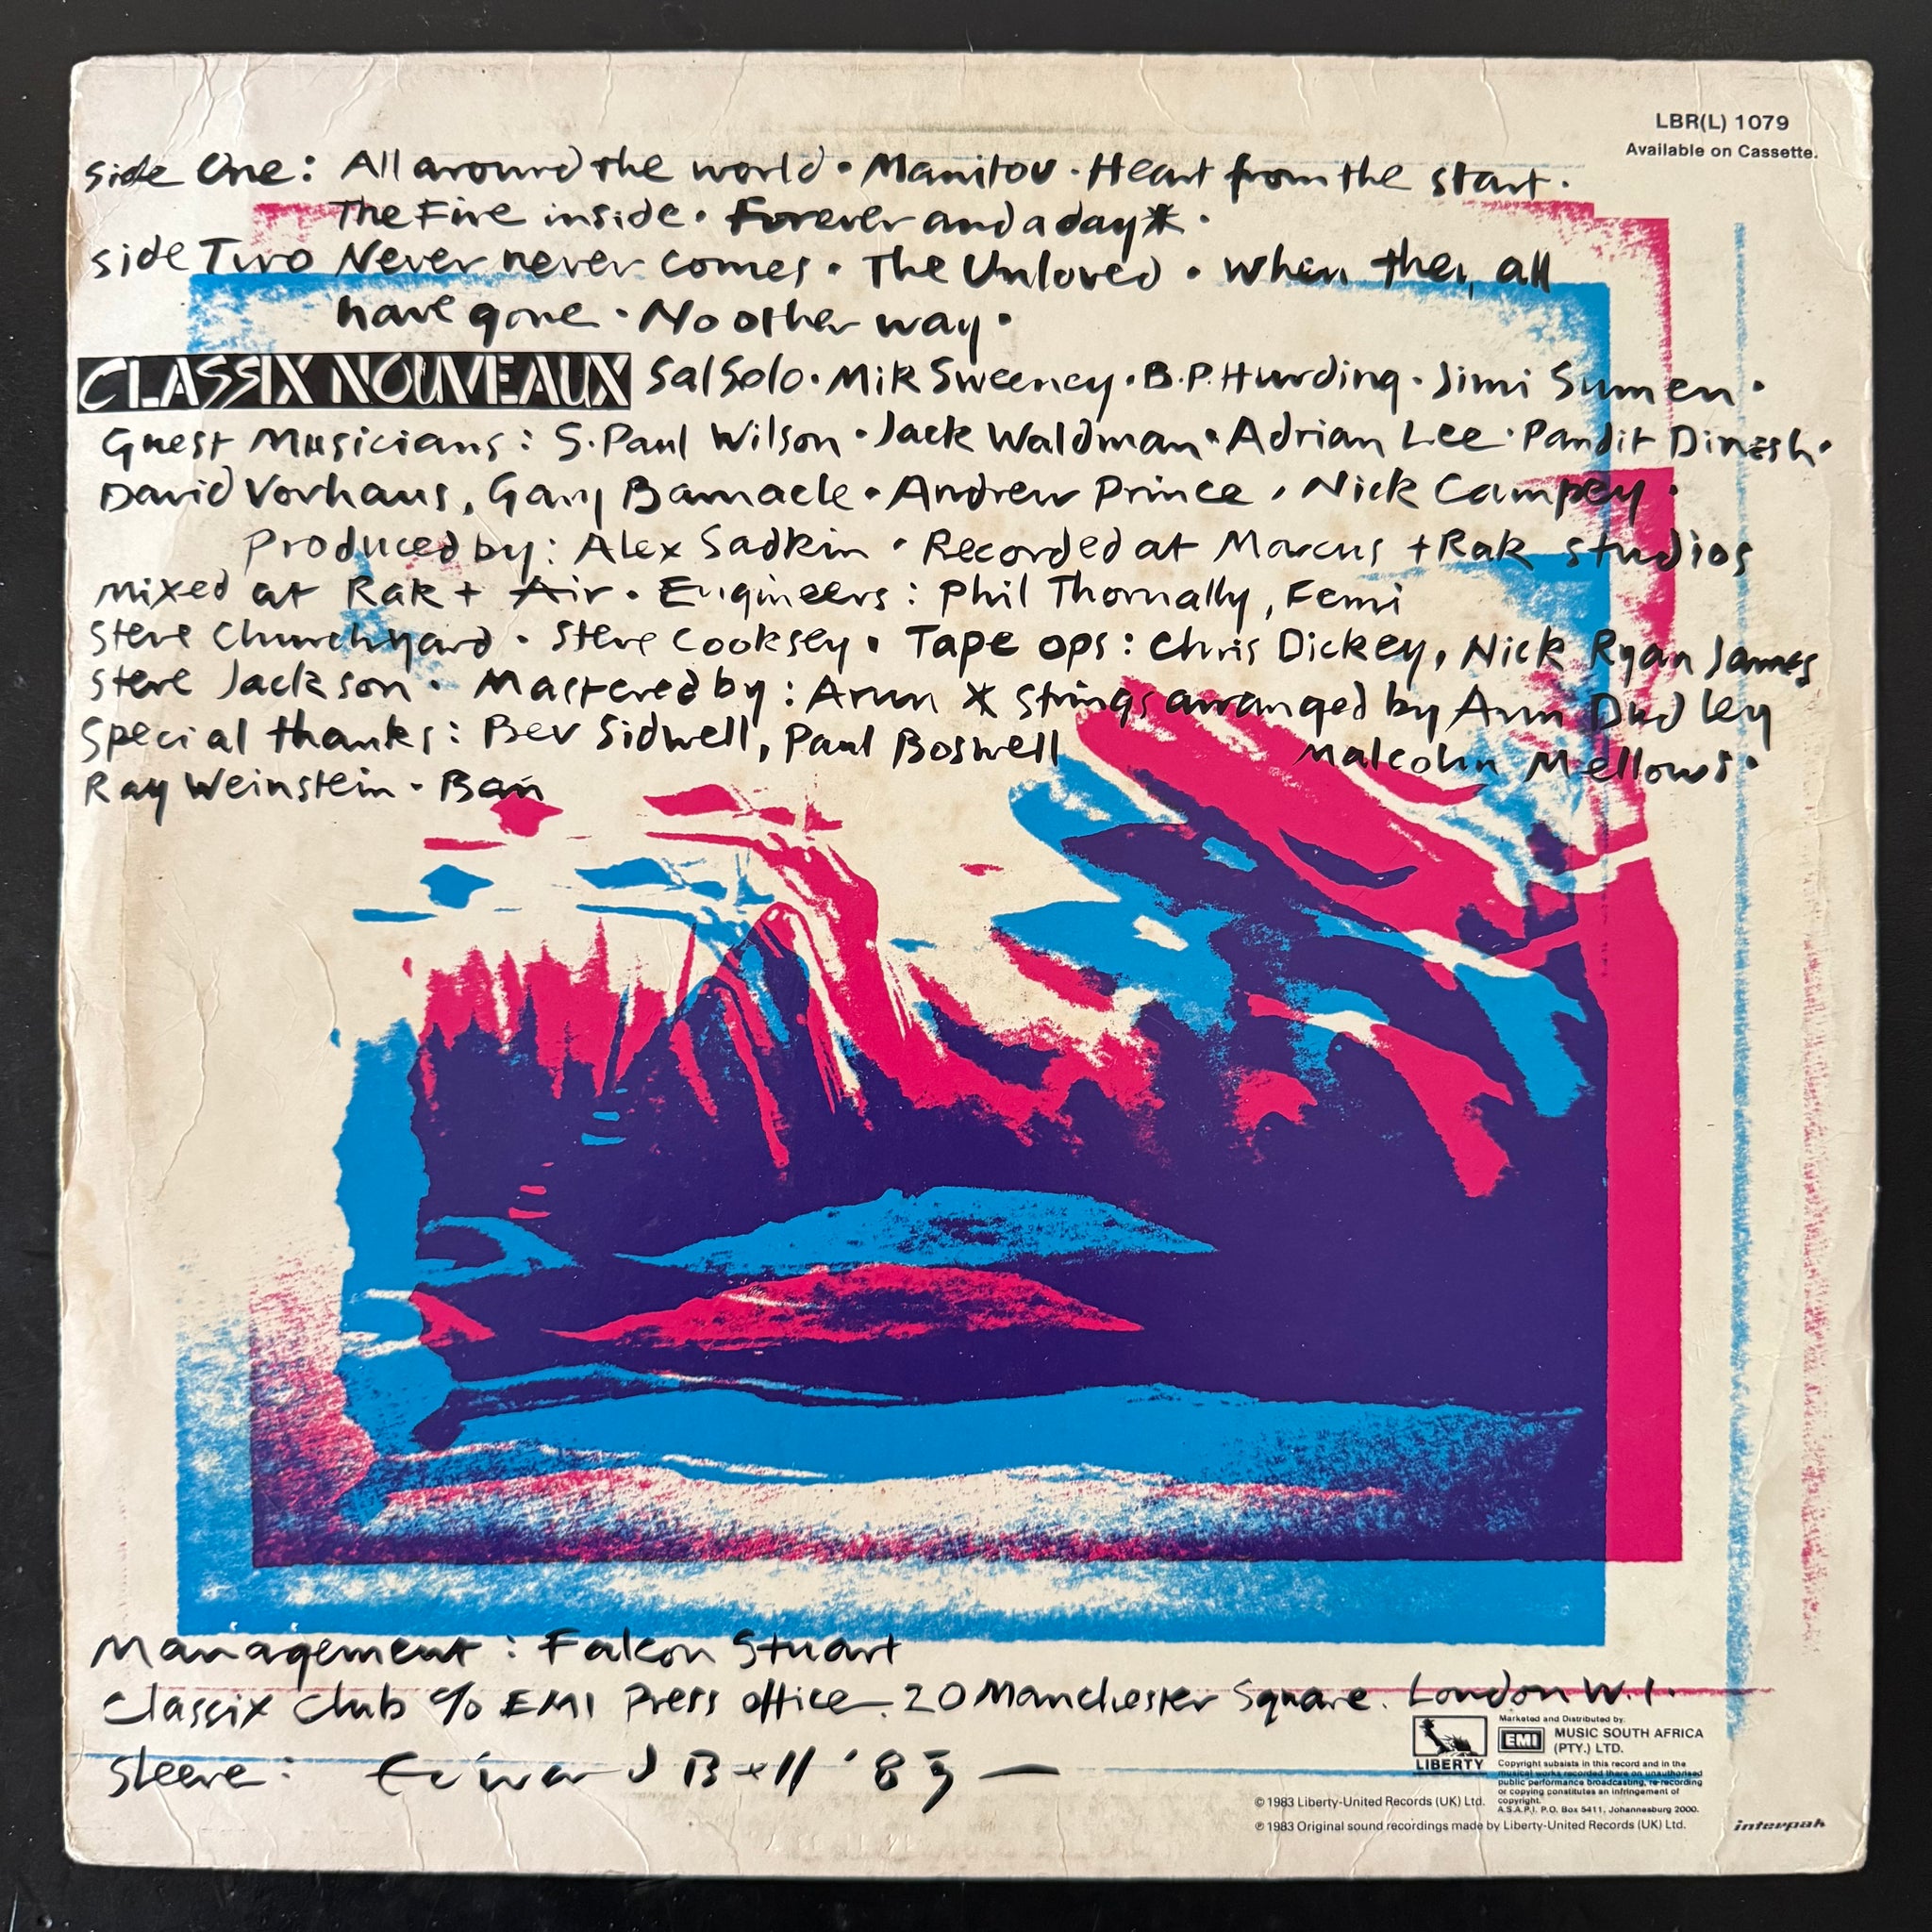 LBR(L) 1079
Available on Cassette.
Side One: All around the world • Manitou • Heart from the start •
The Fire inside • Forever and a day* •
Side Two Never never comes • The Unloved • When they all
have gone • No other way •
CLASSIX NOUVEAUX Sal Solo • Mik Sweeney • B.P. Hurding • Jimi Sumen •
Guest Musicians: S. Paul Wilson • Jack Waldman • Adrian Lee • Pandit Dinesh •
David Vorhaus, Gary Barnacle • Andrew Prince, Nick Campey •
Produced by: Alex Sadkin • Recorded at Marcus + Rak studios
mixed at Rak + Air • Engineers: Phil Thornally, Femi
Steve Churchyard • Steve Cooksey • Tape ops: Chris Dickey, Nick Ryan James
Steve Jackson • Mastered by: Arun * Strings arranged by Ann Dudley
Special thanks: Bev Sidwell, Paul Boswell Malcolm Mellows •
Ray Weinstein • Ban
Management: Falcon Stuart
Classix Club c/o EMI Press office. 20 Manchester Square. London W.1.
Sleeve: Edward Bell '83 —
LIBERTY
Marketed and Distributed by:
EMI MUSIC SOUTH AFRICA
(PTY.) LTD.
Copyright subsists in this record and in the
musical works recorded there on unauthorised
public performance broadcasting, re-recording
or copying constitutes an infringement of
copyright.
A.S.A.P.I. P.O. Box 5411, Johannesburg 2000.
© 1983 Liberty-United Records (UK) Ltd.
℗ 1983 Original sound recordings made by Liberty-United Records (UK) Ltd.
interpak